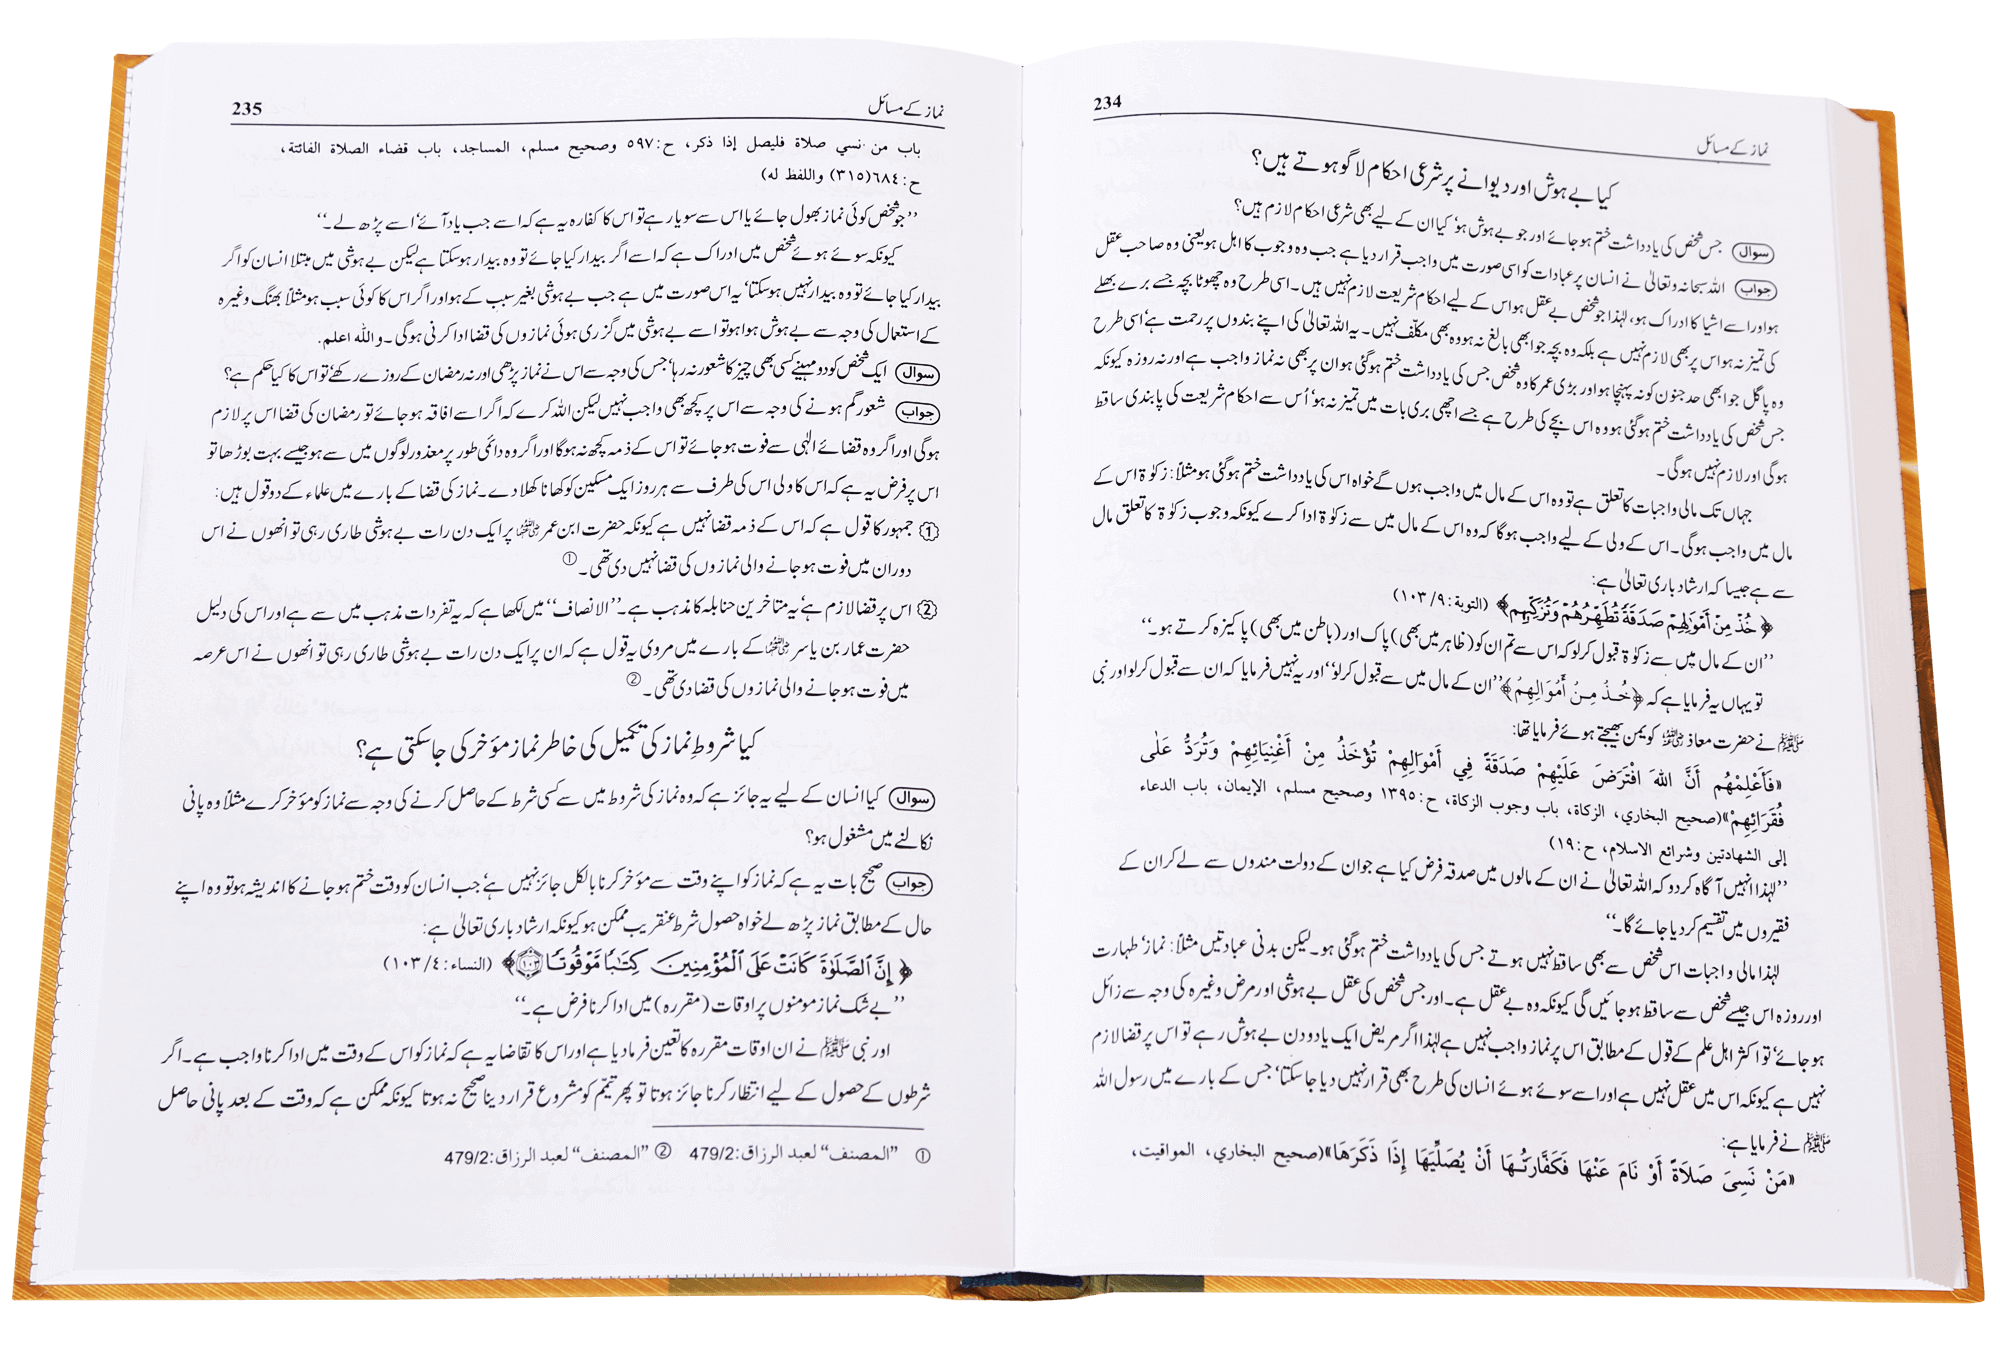 234
نماز کے مسائل
کیا بے ہوش اور دیوانے پر شرعی احکام لاگو ہوتے ہیں؟
سوال جس شخص کی یادداشت ختم ہو جائے اور جو بے ہوش ہو‘ کیا ان کے لیے بھی شرعی احکام لازم ہیں؟
جواب اللہ سبحانہ وتعالیٰ نے انسان پر عبادات کو اسی صورت میں واجب قرار دیا ہے جب وہ وجوب کا اہل ہو یعنی وہ صاحب عقل
ہو اور اسے اشیا کا ادراک ہو، لہٰذا جو شخص بے عقل ہو اس کے لیے احکام شریعت لازم نہیں ہیں۔ اسی طرح وہ چھوٹا بچہ جسے برے بھلے
کی تمیز نہ ہو اس پر بھی لازم نہیں ہے بلکہ وہ بچہ جو ابھی بالغ نہ ہو وہ بھی مکلّف نہیں۔ یہ اللہ تعالیٰ کی اپنے بندوں پر رحمت ہے‘ اسی طرح
وہ پاگل جو ابھی حد جنون کو نہ پہنچا ہو اور بڑی عمر کا وہ شخص جس کی یادداشت ختم ہو گئی ہو ان پر بھی نہ نماز واجب ہے اور نہ روزہ کیونکہ
جس شخص کی یادداشت ختم ہو گئی ہو وہ اس بچے کی طرح ہے جسے اچھی بری بات میں تمیز نہ ہو‘ اُس سے احکام شریعت کی پابندی ساقط
ہوگی اور لازم نہیں ہوگی۔
جہاں تک مالی واجبات کا تعلق ہے تو وہ اس کے مال میں واجب ہوں گے خواہ اس کی یادداشت ختم ہو گئی ہو مثلاً: زکوٰۃ اس کے
مال میں واجب ہوگی۔ اس کے ولی کے لیے واجب ہوگا کہ وہ اس کے مال میں سے زکوٰۃ ادا کرے کیونکہ وجوب زکوٰۃ کا تعلق مال
سے ہے جیسا کہ ارشاد باری تعالیٰ ہے:
﴿خُذْ مِنْ أَمْوَٰلِهِمْ صَدَقَةً تُطَهِّرُهُمْ وَتُزَكِّيهِم﴾ (التوبة: ٩/ ١٠٣)
’’ان کے مال میں سے زکوٰۃ قبول کر لو کہ اس سے تم ان کو (ظاہر میں بھی) پاک اور (باطن میں بھی) پاکیزہ کرتے ہو۔‘‘
تو یہاں یہ فرمایا ہے کہ ﴿خُذْ مِنْ أَمْوَالِهِمْ﴾ ’’ان کے مال میں سے قبول کر لو‘‘ اور یہ نہیں فرمایا کہ ان سے قبول کر لو اور نبی
ﷺ نے حضرت معاذ رضی اللہ عنہ کو یمن بھیجتے ہوئے فرمایا تھا:
«فَأَعْلِمْهُم أَنَّ اللهَ افْتَرَضَ عَلَيْهِمْ صَدَقَةً فِي أَمْوَالِهِمْ تُؤْخَذُ مِنْ أَغْنِيَائِهِمْ وَتُرَدُّ عَلَى
فُقَرَائِهِمْ»(صحيح البخاري، الزكاة، باب وجوب الزكاة، ح: ١٣٩٥ وصحيح مسلم، الإيمان، باب الدعاء
إلى الشهادتين وشرائع الاسلام، ح: ١٩)
’’لہٰذا انہیں آگاہ کر دو کہ اللہ تعالیٰ نے ان کے مالوں میں صدقہ فرض کیا ہے جو ان کے دولت مندوں سے لے کر ان کے
فقیروں میں تقسیم کر دیا جائے گا۔‘‘
لہٰذا مالی واجبات اس شخص سے بھی ساقط نہیں ہوتے جس کی یادداشت ختم ہو گئی ہو۔ لیکن بدنی عبادتیں مثلاً: نماز‘ طہارت
اور روزہ اس جیسے شخص سے ساقط ہو جائیں گی کیونکہ وہ بے عقل ہے۔ اور جس شخص کی عقل بے ہوشی اور مرض وغیرہ کی وجہ سے زائل
ہو جائے‘ تو اکثر اہل علم کے قول کے مطابق اس پر نماز واجب نہیں ہے لہٰذا اگر مریض ایک یا دو دن بے ہوش رہے تو اس پر قضا لازم
نہیں ہے کیونکہ اس میں عقل نہیں ہے اور اسے سوئے ہوئے انسان کی طرح بھی قرار نہیں دیا جا سکتا‘ جس کے بارے میں رسول اللہ
ﷺ نے فرمایا ہے:
«مَنْ نَسِيَ صَلَاةً أَوْ نَامَ عَنْهَا فَكَفَّارَتُهَا أَنْ يُصَلِّيَهَا إِذَا ذَكَرَهَا»(صحيح البخاري، المواقيت،
235
نماز کے مسائل
باب من نسي صلاة فليصل إذا ذكر، ح: ٥٩٧ وصحيح مسلم، المساجد، باب قضاء الصلاة الفائتة،
ح: ٦٨٤(٣١٥) واللفظ له)
’’جو شخص کوئی نماز بھول جائے یا اس سے سویا رہے تو اس کا کفارہ یہ ہے کہ اسے جب یاد آئے‘ اسے پڑھ لے۔‘‘
کیونکہ سوئے ہوئے شخص میں ادراک ہے کہ اسے اگر بیدار کیا جائے تو وہ بیدار ہو سکتا ہے لیکن بے ہوشی میں مبتلا انسان کو اگر
بیدار کیا جائے تو وہ بیدار نہیں ہو سکتا‘ یہ اس صورت میں ہے جب بے ہوشی بغیر سبب کے ہو اور اگر اس کا کوئی سبب ہو مثلاً بھنگ وغیرہ
کے استعمال کی وجہ سے بے ہوش ہوا ہو تو اسے بے ہوشی میں گزری ہوئی نمازوں کی قضا ادا کرنی ہوگی۔ واللہ اعلم.
سوال ایک شخص کو دو مہینے کسی بھی چیز کا شعور نہ رہا‘ جس کی وجہ سے اس نے نماز پڑھی اور نہ رمضان کے روزے رکھے‘ تو اس کا کیا حکم ہے؟
جواب شعور گم ہونے کی وجہ سے اس پر کچھ بھی واجب نہیں لیکن اللہ کرے کہ اگر اسے افاقہ ہو جائے تو رمضان کی قضا اس پر لازم
ہوگی اور اگر وہ قضائے الٰہی سے فوت ہو جائے تو اس کے ذمہ کچھ نہ ہوگا اور اگر وہ دائمی طور پر معذور لوگوں میں سے ہو جیسے بہت بوڑھا تو
اس پر فرض یہ ہے کہ اس کا ولی اس کی طرف سے ہر روز ایک مسکین کو کھانا کھلا دے۔ نماز کی قضا کے بارے میں علماء کے دو قول ہیں:
① جمہور کا قول ہے کہ اس کے ذمہ قضا نہیں ہے کیونکہ حضرت ابن عمر رضی اللہ عنہما پر ایک دن رات بے ہوشی طاری رہی تو انھوں نے اس
دوران میں فوت ہو جانے والی نمازوں کی قضا نہیں دی تھی۔ ①
② اس پر قضا لازم ہے‘ یہ متاخرین حنابلہ کا مذہب ہے۔ ’’الانصاف‘‘ میں لکھا ہے کہ یہ تفردات مذہب میں سے ہے اور اس کی دلیل
حضرت عمار بن یاسر رضی اللہ عنہما کے بارے میں مروی یہ قول ہے کہ ان پر ایک دن رات بے ہوشی طاری رہی تو انھوں نے اس عرصہ
میں فوت ہو جانے والی نمازوں کی قضا دی تھی۔ ②
کیا شروطِ نماز کی تکمیل کی خاطر نماز مؤخر کی جا سکتی ہے؟
سوال کیا انسان کے لیے یہ جائز ہے کہ وہ نماز کی شروط میں سے کسی شرط کے حاصل کرنے کی وجہ سے نماز کو مؤخر کرے مثلاً وہ پانی
نکالنے میں مشغول ہو؟
جواب صحیح بات یہ ہے کہ نماز کو اپنے وقت سے مؤخر کرنا بالکل جائز نہیں ہے‘ جب انسان کو وقت ختم ہو جانے کا اندیشہ ہو تو وہ اپنے
حال کے مطابق نماز پڑھ لے خواہ حصول شرط عنقریب ممکن ہو کیونکہ ارشاد باری تعالیٰ ہے:
﴿إِنَّ ٱلصَّلَوٰةَ كَانَتْ عَلَى ٱلْمُؤْمِنِينَ كِتَٰبًا مَّوْقُوتًا ١٠٣﴾ (النساء: ٤/ ١٠٣)
’’بے شک نماز مومنوں پر اوقات (مقررہ) میں ادا کرنا فرض ہے۔‘‘
اور نبی ﷺ نے ان اوقات مقررہ کا تعین فرما دیا ہے اور اس کا تقاضا یہ ہے کہ نماز کو اس کے وقت میں ادا کرنا واجب ہے۔ اگر
شرطوں کے حصول کے لیے انتظار کرنا جائز ہوتا تو پھر تیمّم کو مشروع قرار دینا صحیح نہ ہوتا کیونکہ ممکن ہے کہ وقت کے بعد پانی حاصل
① ”المصنف“ لعبد الرزاق: 479/2 ② ”المصنف“ لعبد الرزاق: 479/2